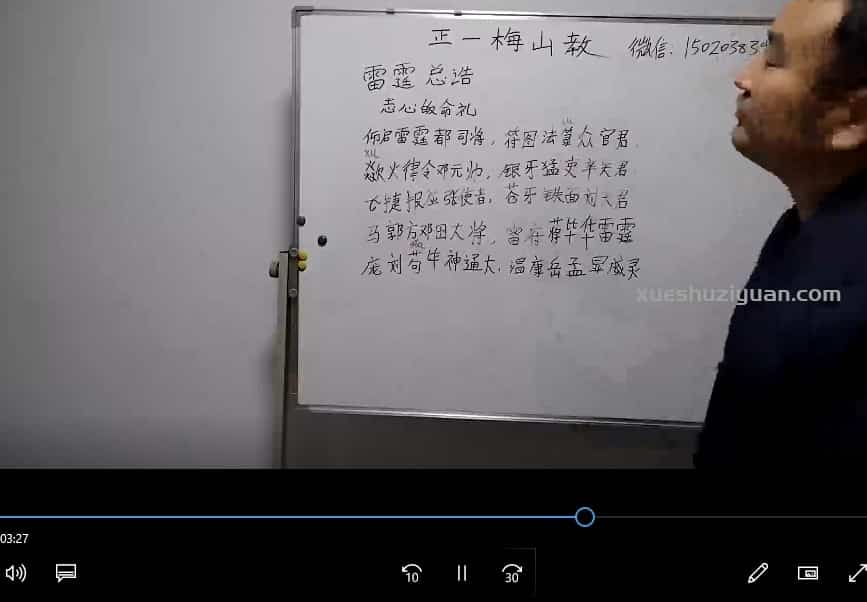 正一梅山教
微信:1502038
雷霆总诰
志心皈命礼
仰启雷霆都司将,符图法箓众官君
XU
欻火律令邓元帅,银牙猛吏辛天君
飞捷报应张使者,苍牙铁面刘天君
马郭方邓田大将,雷府蒋毕华雷霆
庞刘苟毕神通大,温康岳孟显威灵
xueshuziyuan.com
03:27
10
30